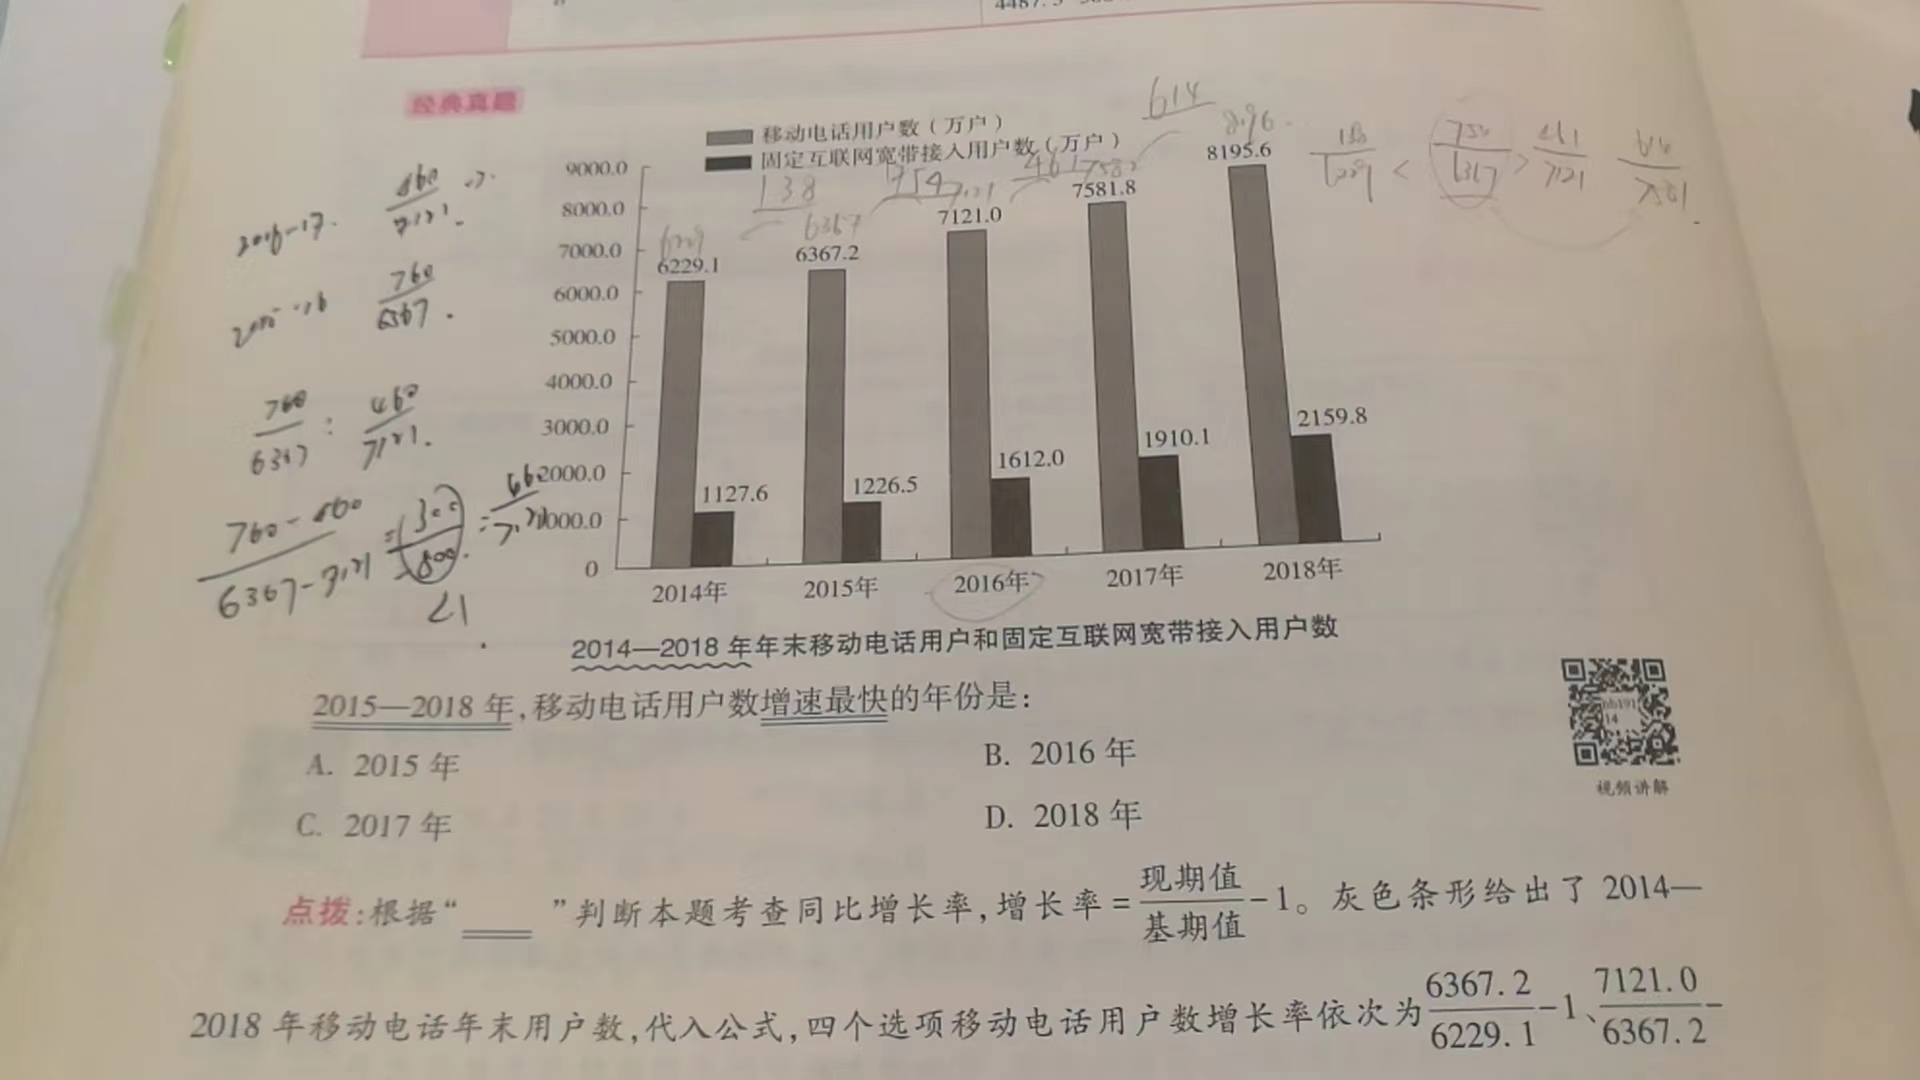 经典真题
移动电话用户数（万户）
固定互联网宽带接入用户数（万户）
614
8196
138
754
461
6229
6367
9000.0
8000.0
7000.0
6000.0
5000.0
4000.0
3000.0
2000.0
0
6229.1
6367.2
7121.0
7581.8
8195.6
1127.6
1226.5
1612.0
1910.1
2159.8
2014年 2015年 2016年 2017年 2018年
2016-17. 460/7121.
760/6367.
760/6367 : 460/7121.
760-460/6367-7121
<1
2014—2018 年年末移动电话用户和固定互联网宽带接入用户数
2015—2018 年,移动电话用户数增速最快的年份是:
A. 2015 年
B. 2016 年
C. 2017 年
D. 2018 年
视频讲解
点拨:根据“____”判断本题考查同比增长率,增长率=现期值/基期值-1。灰色条形给出了 2014—
2018 年移动电话年末用户数,代入公式,四个选项移动电话用户数增长率依次为6367.2/6229.1-1、7121.0/6367.2-